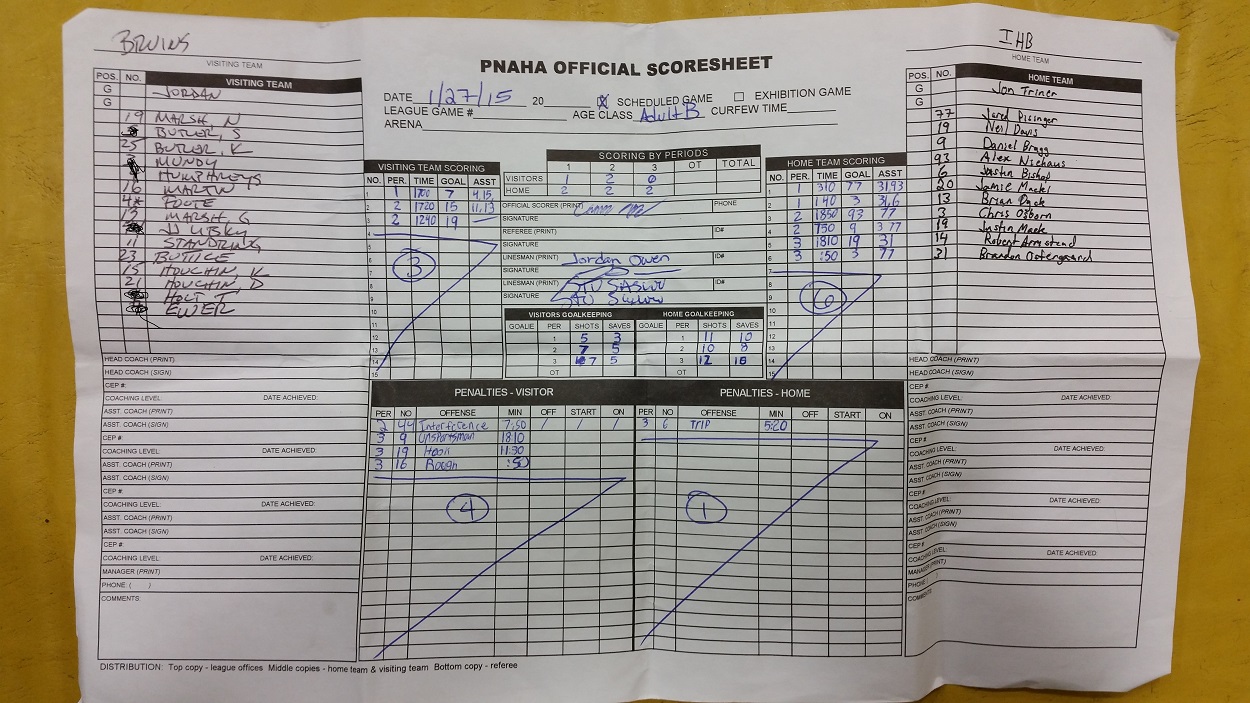 BRUINS
VISITING TEAM
POS. NO. VISITING TEAM
G JORDAN
G
19 MARSH, N
BUTLER, S
25 BUTLER, K
MUNDY
HUMPHREYS
16 MARTIN
FOOTE
13 MARSH, G
11 STANDRING
23 BUTTICE
15 HOUCHIN, K
21 HOUCHIN, D
HOLT T
EWER
HEAD COACH (PRINT)
HEAD COACH (SIGN)
CEP #:
COACHING LEVEL: DATE ACHIEVED:
ASST. COACH (PRINT)
ASST. COACH (SIGN)
CEP #:
COACHING LEVEL: DATE ACHIEVED:
ASST. COACH (PRINT)
ASST. COACH (SIGN)
CEP #:
COACHING LEVEL: DATE ACHIEVED:
ASST. COACH (PRINT)
ASST. COACH (SIGN)
CEP #:
COACHING LEVEL: DATE ACHIEVED:
MANAGER (PRINT)
PHONE ( )
COMMENTS:
PNAHA OFFICIAL SCORESHEET
DATE 1/27/15 20 X SCHEDULED GAME EXHIBITION GAME
LEAGUE GAME # AGE CLASS Adult B CURFEW TIME
ARENA
VISITING TEAM SCORING
NO. PER. TIME GOAL ASST
1 1 1700 7 4,15
2 2 1720 15 11,13
3 2 1240 19
4
5
6
7
8
9
10
11
12
13
14
15
3
SCORING BY PERIODS
1 2 3 OT TOTAL
VISITORS 1 2 0
HOME 2 2 2
OFFICIAL SCORER (PRINT) PHONE
SIGNATURE
REFEREE (PRINT) ID#
SIGNATURE
LINESMAN (PRINT) Jordan Owen ID#
SIGNATURE
LINESMAN (PRINT) ID#
SIGNATURE
VISITORS GOALKEEPING HOME GOALKEEPING
GOALIE PER SHOTS SAVES GOALIE PER SHOTS SAVES
1 5 3 1 11 10
2 7 5 2 10 8
3 7 5 3 12
OT OT
HOME TEAM SCORING
NO. PER. TIME GOAL ASST
1 1 310 77 31,93
2 1 140 3 31,6
3 2 1850 93 77
4 2 750 9 3 77
5 3 1810 19 31
6 3 :50 3 77
7
8
9
10
11
12
13
14
15
6
PENALTIES - VISITOR
PER NO OFFENSE MIN OFF START ON
2 44 Interference 7:50 / / /
3 9 Unsportsman 1810
3 19 Hook 11:30
3 16 Rough :50
4
PENALTIES - HOME
PER NO OFFENSE MIN OFF START ON
3 6 TRIP 5:20
1
IHB
HOME TEAM
POS. NO. HOME TEAM
G Jon Triner
G
77 Jared Pissinger
19 Neil Davis
9 Daniel Bragg
93 Alex Niehaus
6 Justin Bishop
20 Jamie Mackl
13 Brian Dyck
3 Chris Osborn
19 Justin Mack
14 Robert Armstead
31 Brandon Ostergaard
HEAD COACH (PRINT)
HEAD COACH (SIGN)
CEP #:
COACHING LEVEL: DATE ACHIEVED:
ASST. COACH (PRINT)
ASST. COACH (SIGN)
CEP #:
COACHING LEVEL: DATE ACHIEVED:
ASST. COACH (PRINT)
ASST. COACH (SIGN)
CEP #:
COACHING LEVEL: DATE ACHIEVED:
ASST. COACH (PRINT)
ASST. COACH (SIGN)
CEP #:
COACHING LEVEL: DATE ACHIEVED:
MANAGER (PRINT)
PHONE ( )
COMMENTS:
DISTRIBUTION: Top copy - league offices Middle copies - home team & visiting team Bottom copy - referee